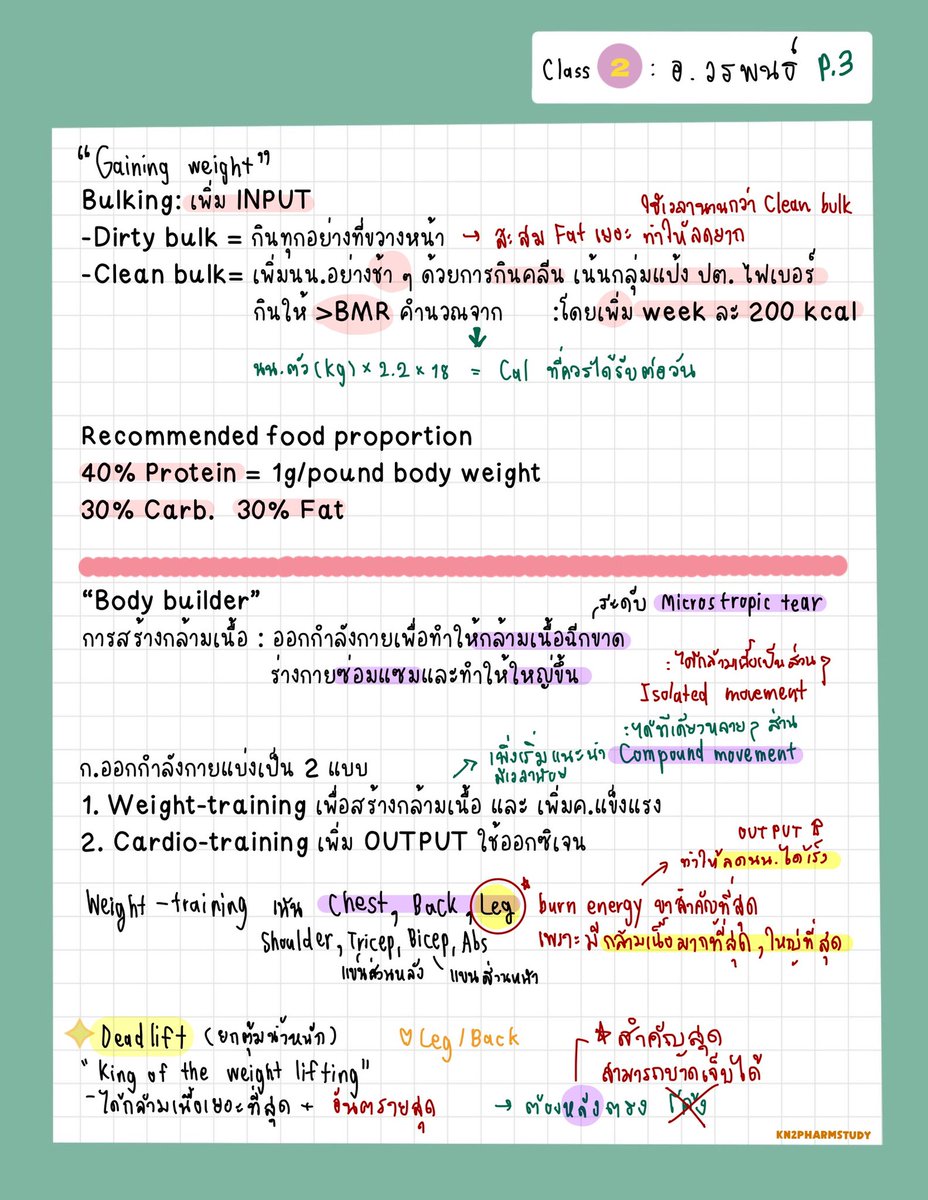 Class 2 : อ. วรพนธ์ P.3
"Gaining weight"
Bulking: เพิ่ม INPUT
ใช้เวลานานกว่า Clean bulk
-Dirty bulk = กินทุกอย่างที่ขวางหน้า → สะสม Fat เยอะ ทำให้ลดยาก
-Clean bulk= เพิ่มนน.อย่างช้า ๆ ด้วยการกินคลีน เน้นกลุ่มแป้ง ปต. ไฟเบอร์
กินให้ >BMR คำนวณจาก :โดยเพิ่ม week ละ 200 kcal
นน.ตัว (kg) × 2.2 × 18 = Cal ที่ควรได้รับต่อวัน
Recommended food proportion
40% Protein = 1g/pound body weight
30% Carb. 30% Fat
"Body builder"
ระดับ Microstropic tear
การสร้างกล้ามเนื้อ : ออกกำลังกายเพื่อทำให้กล้ามเนื้อฉีกขาด
ร่างกายซ่อมแซมและทำให้ใหญ่ขึ้น
: ได้กล้ามเนื้อเป็นส่วน ๆ
Isolated movement
: ได้ทีเดียวหลาย ๆ ส่วน
เพิ่งเริ่มแนะนำ Compound movement
มีเวลาน้อย
ก.ออกกำลังกายแบ่งเป็น 2 แบบ
1. Weight-training เพื่อสร้างกล้ามเนื้อ และ เพิ่มค.แข็งแรง
2. Cardio-training เพิ่ม OUTPUT ใช้ออกซิเจน
OUTPUT ↑
ทำให้ลดนน.ได้เร็ว
Weight-training เน้น Chest, Back, Leg * burn energy ขาสำคัญที่สุด
Shoulder, Tricep, Bicep, Abs เพราะมีกล้ามเนื้อมากที่สุด, ใหญ่ที่สุด
แขนส่วนหลัง แขนส่วนหน้า
Deadlift (ยกตุ้มน้ำหนัก) ♡ Leg/Back ★ สำคัญสุด
"King of the weight lifting" สามารถบาดเจ็บได้
- ได้กล้ามเนื้อเยอะที่สุด + อันตรายสุด → ต้องหลังตรง โค้ง
KN2PHARMSTUDY